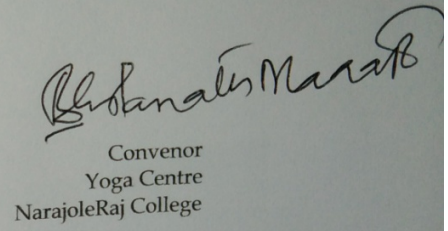 Bholanath
Convenor
Yoga Centre
NarajoleRaj College